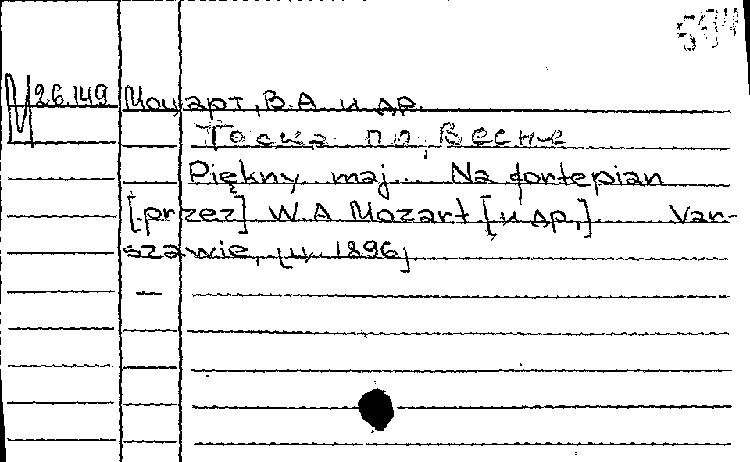 594
М 26.149 Моцарт, В.А. и др.
Тоска по весне
Piękny maj... Na fortepian
[przez] W.A Mozart [и др.] Var-
szawie, [ц. 1896]